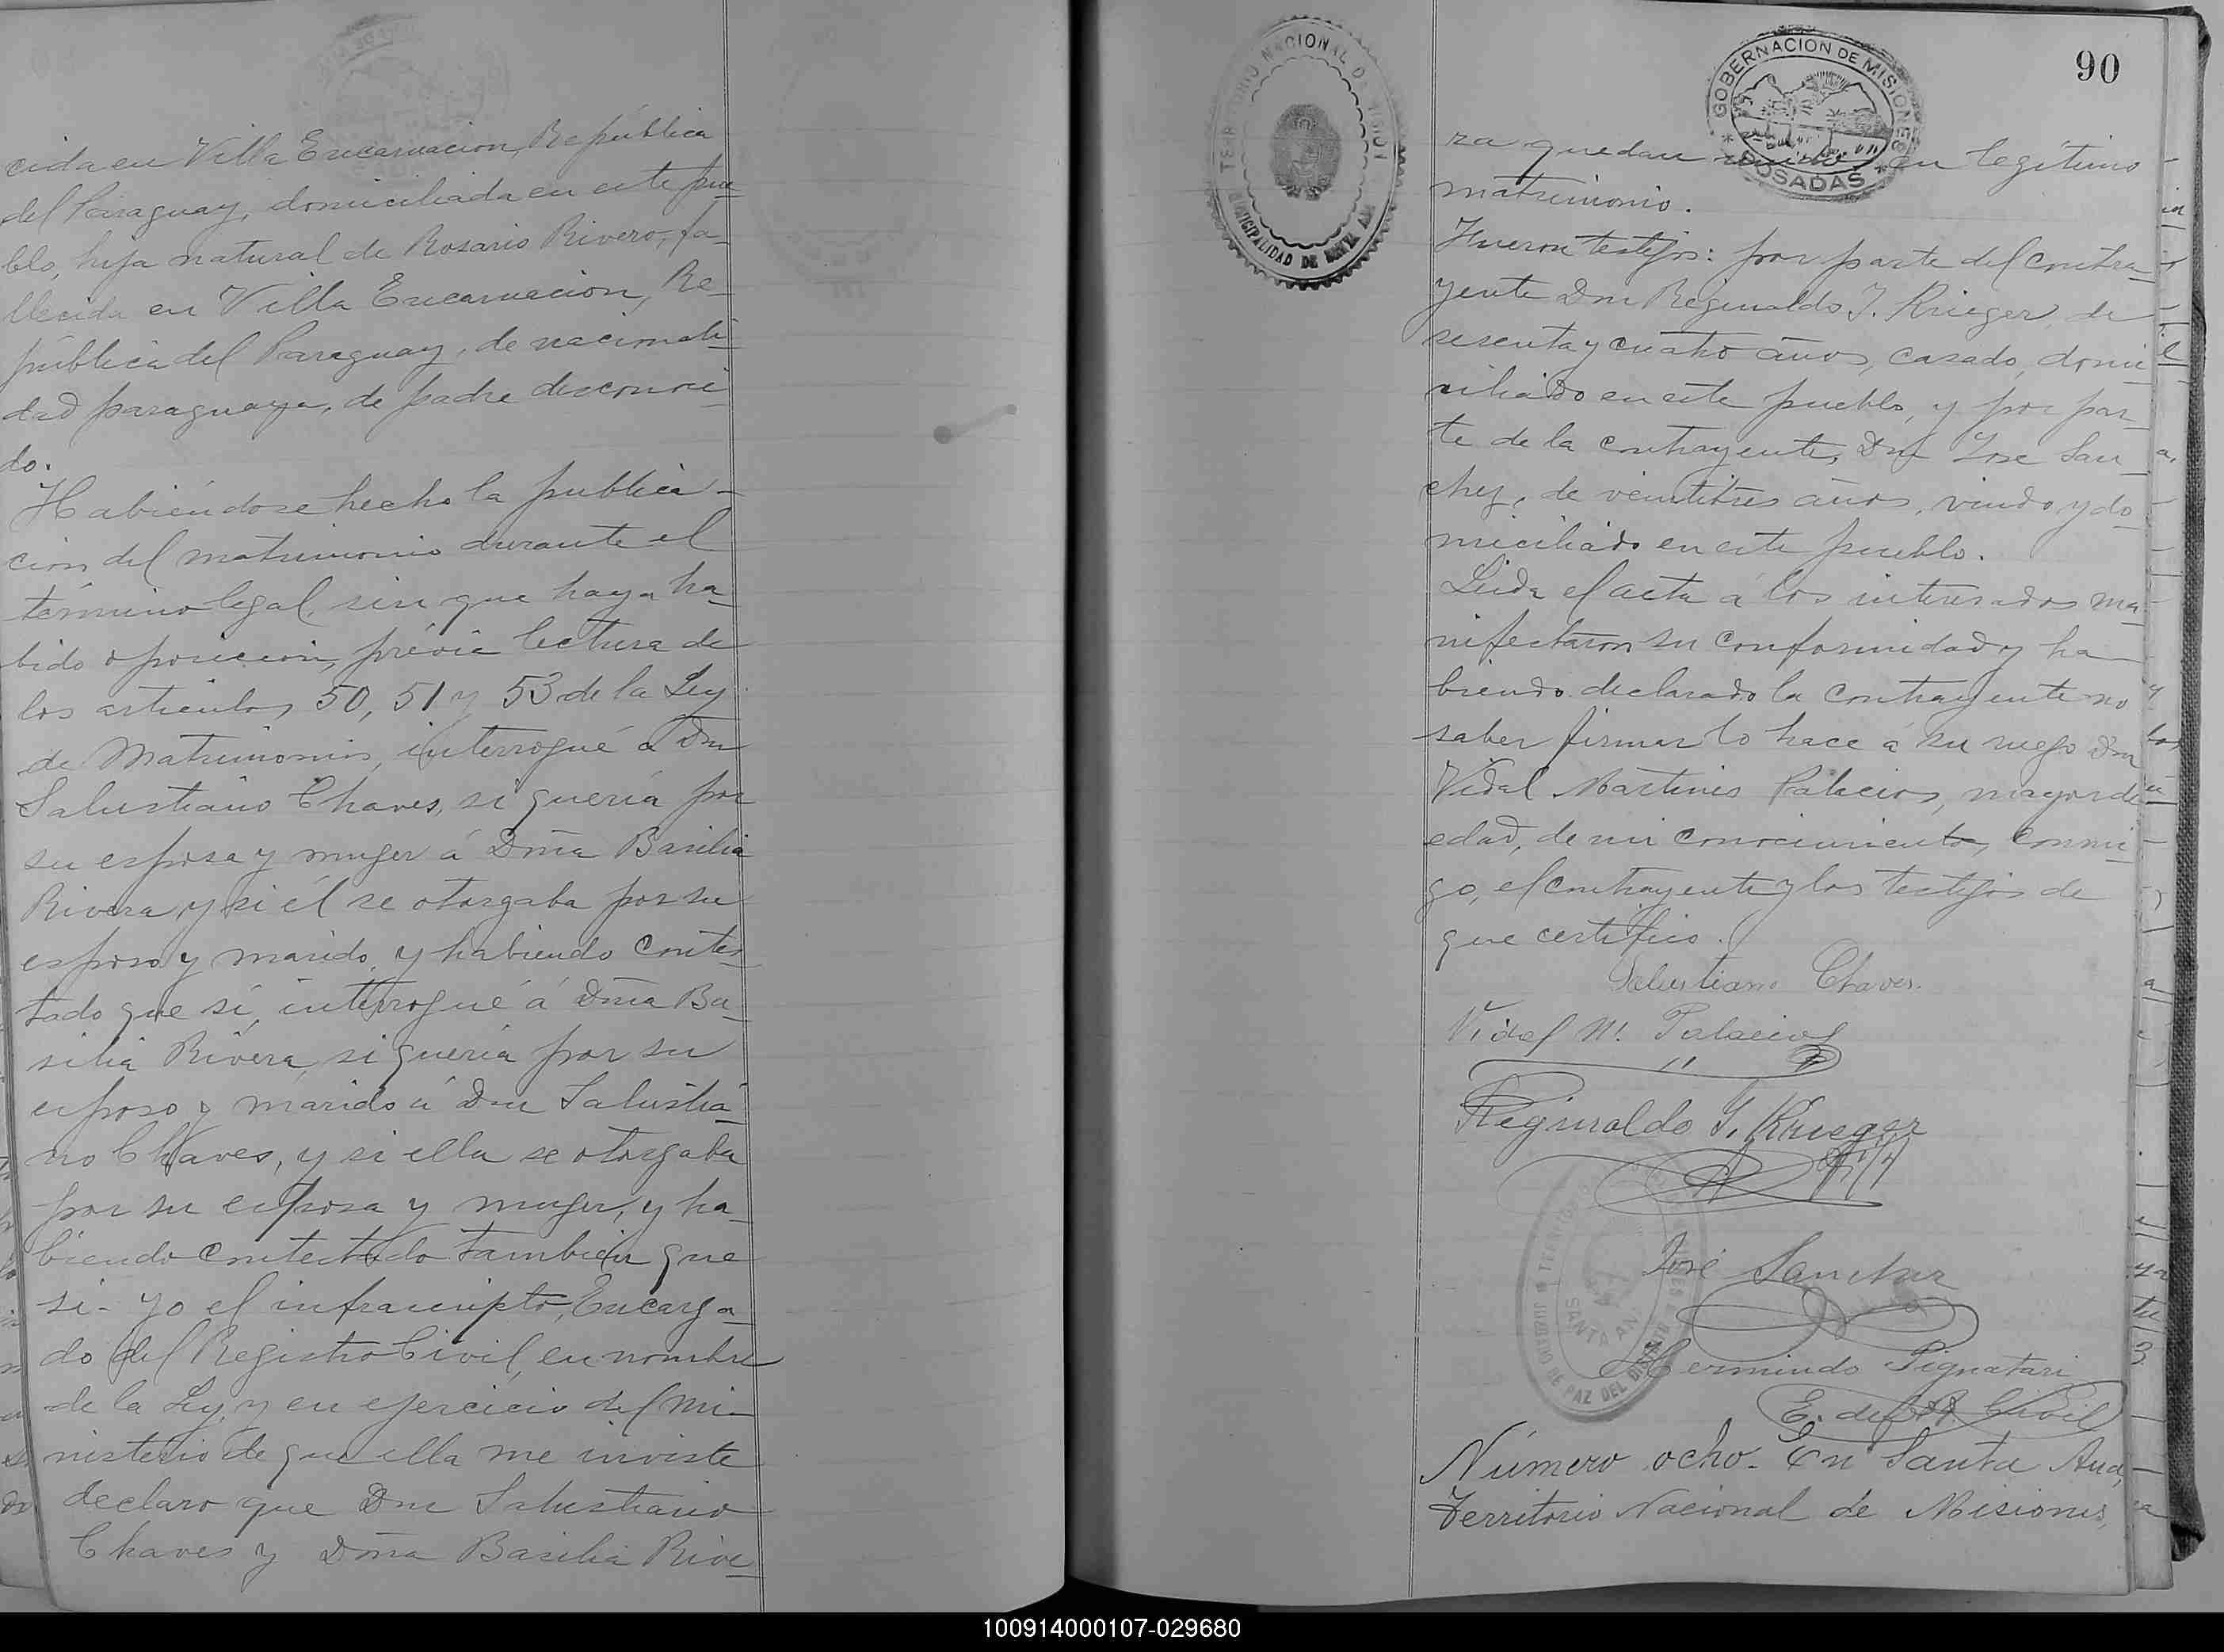 cida en Villa Encarnacion, República
del Paraguay, domiciliada en este pue-
blo, hija natural de Rosario Rivero, fa-
llecida en Villa Encarnacion, Re-
pública del Paraguay, de nacionali-
dad paraguaya, de padre desconoci-
do.
Habiéndose hecho la publica-
cion del matrimonio durante el
término legal, sin que haya ha-
bido oposicion, prévia lectura de
los articulos 50, 51 y 53 de la Ley
de Matrimonio, interrogué á Dn
Salustiano Chaves, si queria por
su esposa y muger á Dña Basilia
Rivera y si él se otorgaba por su
esposo y marido, y habiendo contes-
tado que si, interrogué á Dña Ba-
silia Rivera, si queria por su
esposo y marido á Dn Salustia-
no Chaves, y si ella se otorgaba
por su esposa y muger, y ha-
biendo contestado tambien que
si- yo el infrascripto, Encarga-
do del Registro Civil, en nombre
de la Ley, y en ejercicio del mi-
nisterio de que ella me inviste
declaro que Dn Salustiano
Chaves y Dña Basilia Rive-
TERRITORIO NACIONAL DE MISIONES
MUNICIPALIDAD DE SANTA ANA
GOBERNACION DE MISIONES
* POSADAS *
90
ra quedan unidos en legítimo
matrimonio.
Fueron testigos: por parte del contra-
yente Dn Reginaldo J. Krieger, de
sesenta y cuatro años, casado, domi-
ciliado en este pueblo, y por par-
te de la contrayente, Dn Jose San-
chez, de veintitres años, viudo y do-
miciliado en este pueblo.
Leida el acta á los interesados ma-
nifestaron su conformidad y ha-
biendo declarado la contrayente no
saber firmar lo hace á su ruego Dn
Vidal Martines Palacios, mayor de
edad, de mi conocimiento, conmi-
go, el contrayente y los testigos de
que certifico.
Salustiano Chaves.
Vidal M. Palacios
Reginaldo J. Krieger
José Sanchez
JUZGADO DE PAZ DEL
SANTA ANA
Hermindo Pignatari
E. del R. Civil
Número ocho- En Santa Ana,
Territorio Nacional de Misiones,
100914000107-029680